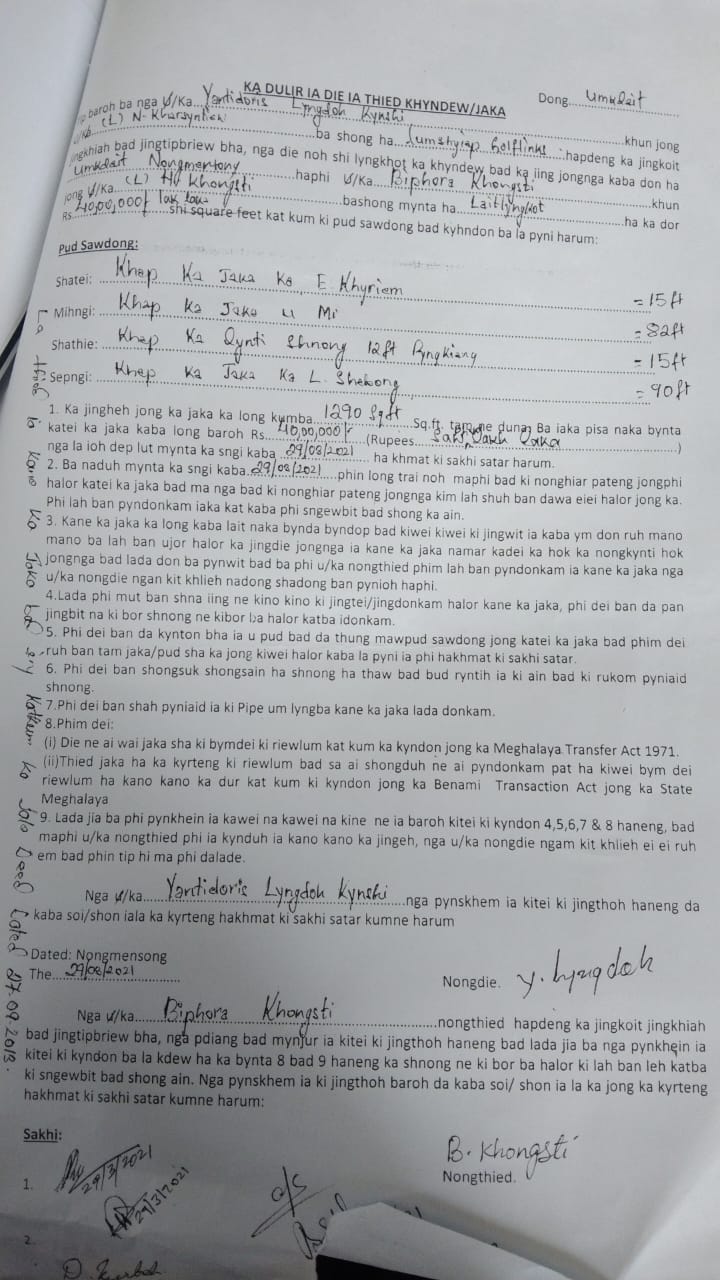 KA DULIR IA DIE IA THIED KHYNDEW/JAKA
Dong....Umkdait
baroh ba nga U/Ka...Yantidoris Lyngdoh Kynshi...khun jong
(L) N. Kharsyntiew...ba shong ha...Lumshyiap...hapdeng ka jingkoit
jingkhiah bad jingtipbriew bha, nga die noh shi lyngkhot ka khyndew bad ka iing jongnga kaba don ha
Umkdait Nongmensong...haphi U/Ka...Biphora Khongsti...khun
jong U/Ka...(L) H. Khongsti...bashong mynta ha...Laitlyngkot...ha ka dor
Rs. 40,00,000/- shi square feet kat kum ki pud sawdong bad kyhndon ba la pyni harum:
Pud Sawdong:
Shatei: Khap Ka Jaka Ka E. Khyriem = 15ft
Mihngi: Khap ka Jaka u Mr = 82ft
Shathie: Khap Ka Synti Shnong 12ft = 15ft
Sepngi: Khap Ka Jaka Ka L. = 90ft
1. Ka jingheh jong ka jaka ka long kumba...1290 Sqft...Sq.ft. tam ne duna; Ba iaka pisa naka bynta
katei ka jaka kaba long baroh Rs...40,00,000/-...(Rupees...)
nga la ioh dep lut mynta ka sngi kaba 29/03/2021 ha khmat ki sakhi satar harum.
2. Ba naduh mynta ka sngi kaba...29/03/2021...phin long trai noh maphi bad ki nonghiar pateng jongphi
halor katei ka jaka bad ma nga bad ki nonghiar pateng jongnga kim lah shuh ban dawa eiei halor jong ka.
Phi lah ban pyndonkam iaka kat kaba phi sngewbit bad shong ka ain.
3. Kane ka jaka ka long kaba lait naka bynda byndop bad kiwei kiwei ki jingwit ia kaba ym don ruh mano
mano ba lah ban ujor halor ka jingdie jongnga ia kane ka jaka namar kadei ka hok ka nongkynti hok
jongnga bad lada don ba pynwit bad ba phi u/ka nongthied phim lah ban pyndonkam ia kane ka jaka nga
u/ka nongdie ngan kit khlieh nadong shadong ban pynioh haphi.
4.Lada phi mut ban shna iing ne kino kino ki jingtei/jingdonkam halor kane ka jaka, phi dei ban da pan
jingbit na ki bor shnong ne kibor ba halor katba idonkam.
5. Phi dei ban da kynton bha ia u pud bad da thung mawpud sawdong jong katei ka jaka bad phim dei
ruh ban tam jaka/pud sha ka jong kiwei halor kaba la pyni ia phi hakhmat ki sakhi satar.
6. Phi dei ban shongsuk shongsain ha shnong ha thaw bad bud ryntih ia ki ain bad ki rukom pyniaid
shnong.
7.Phi dei ban shah pyniaid ia ki Pipe um lyngba kane ka jaka lada donkam.
8.Phim dei:
(i) Die ne ai wai jaka sha ki bymdei ki riewlum kat kum ka kyndon jong ka Meghalaya Transfer Act 1971.
(ii)Thied jaka ha ka kyrteng ki riewlum bad sa ai shongduh ne ai pyndonkam pat ha kiwei bym dei
riewlum ha kano kano ka dur kat kum ki kyndon jong ka Benami Transaction Act jong ka State
Meghalaya
9. Lada jia ba phi pynkhein ia kawei na kawei na kine ne ia baroh kitei ki kyndon 4,5,6,7 & 8 haneng, bad
maphi u/ka nongthied phi ia kynduh ia kano kano ka jingeh, nga u/ka nongdie ngam kit khlieh ei ei ruh
em bad phin tip hi ma phi dalade.
Nga U/ka...Yantidoris Lyngdoh Kynshi...nga pynskhem ia kitei ki jingthoh haneng da
kaba soi/shon iala ka kyrteng hakhmat ki sakhi satar kumne harum
Dated: Nongmensong
The...29/03/2021
Nongdie. Y. Lyngdoh
Nga U/ka...Biphora Khongsti...nongthied hapdeng ka jingkoit jingkhiah
bad jingtipbriew bha, nga pdiang bad mynjur ia kitei ki jingthoh haneng bad lada jia ba nga pynkhein ia
kitei ki kyndon ba la kdew ha ka bynta 8 bad 9 haneng ka shnong ne ki bor ba halor ki lah ban leh katba
ki sngewbit bad shong ain. Nga pynskhem ia ki jingthoh baroh da kaba soi/ shon ia la ka jong ka kyrteng
hakhmat ki sakhi satar kumne harum:
Sakhi:
B. Khongsti
Nongthied.
1. 29/3/2021
29/3/2021
2.